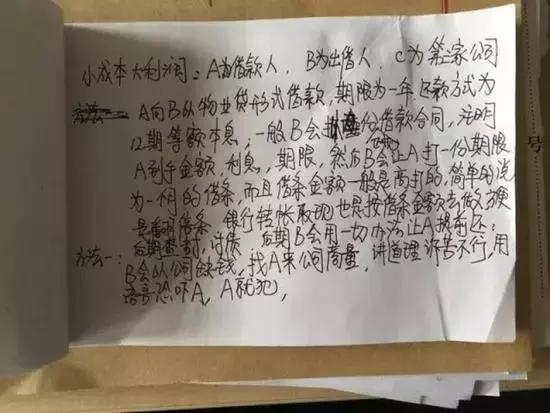 小成本大利润:A为借款人,B为出借人,C为第三家公司
A向B以物业贷形式借款,期限为一年还款方式为
12期等额本息,一般B会 份借款合同,注明
A到手金额,利息,期限,然后B会让A打一份期限
为一个月的借条,而且借条金额一般是高打的,简单的说
是翻倍借条 银行转帐取现也是按借条金额去做 方便
后期查封,讨债 后期B会用一切办法让A提前还:
方法一:B会以公司缺钱,找A来公司商量,讲道理 诉苦不行,用
语言恐吓A,A就犯,
号